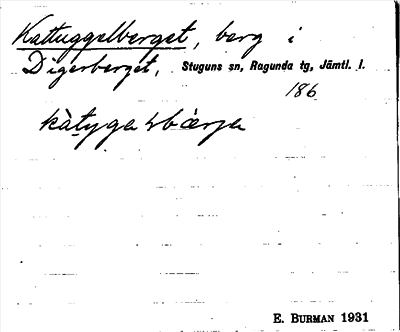 Kattuggelberget, berg i
Digerberget, Stuguns sn, Ragunda tg, Jämtl. l.
186
kàtyga bærja
E. BURMAN 1931